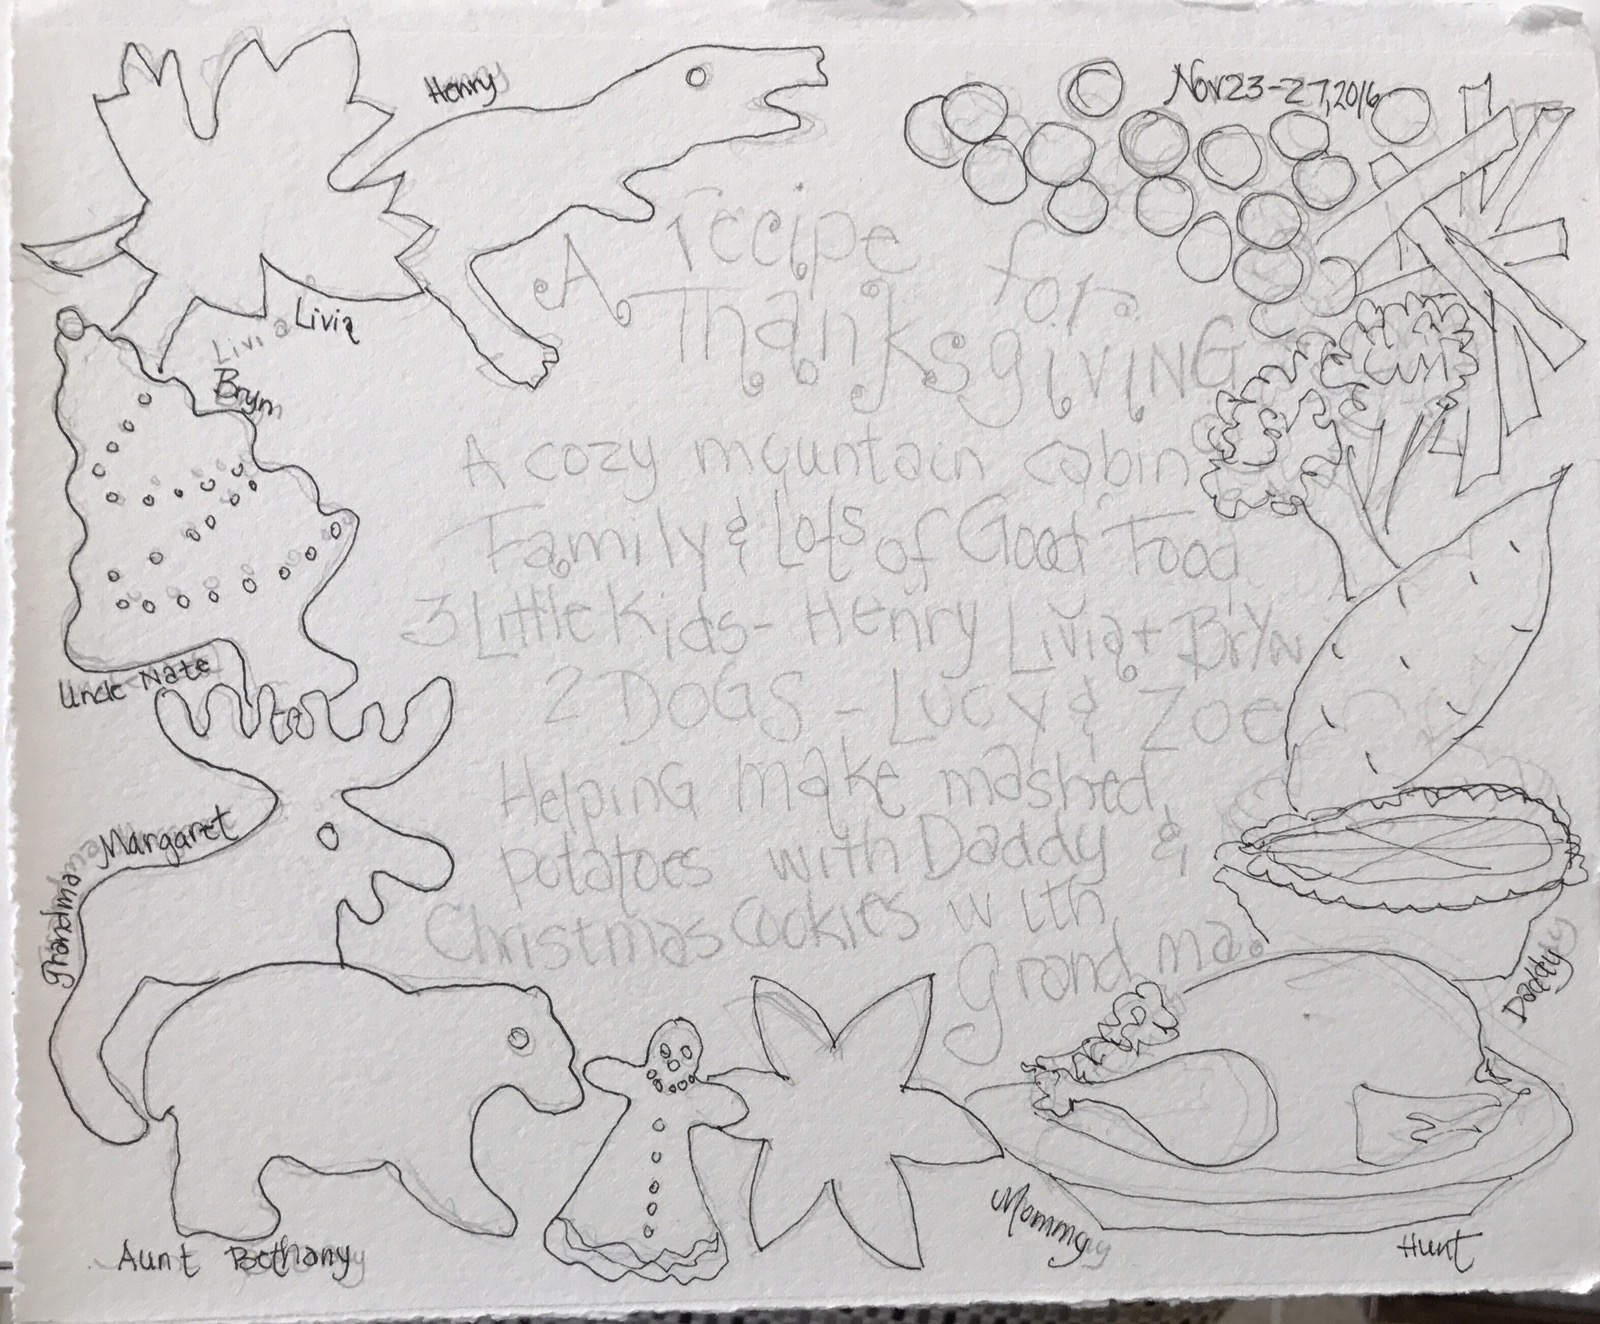 Henry
Nov 23-27, 2016
A recipe for
Thanksgiving
Livia
Livia
Brym
A cozy mountain cabin
Family & Lots of Good Food
3 Little Kids- Henry Livia + Bryn
2 DOGS - Lucy & Zoe
Uncle Nate
Helping make mashed
potatoes with Daddy &
Christmas Cookies with
Grandma.
Grandma Margaret
Daddy
Mommy
Hunt
Aunt Bethany